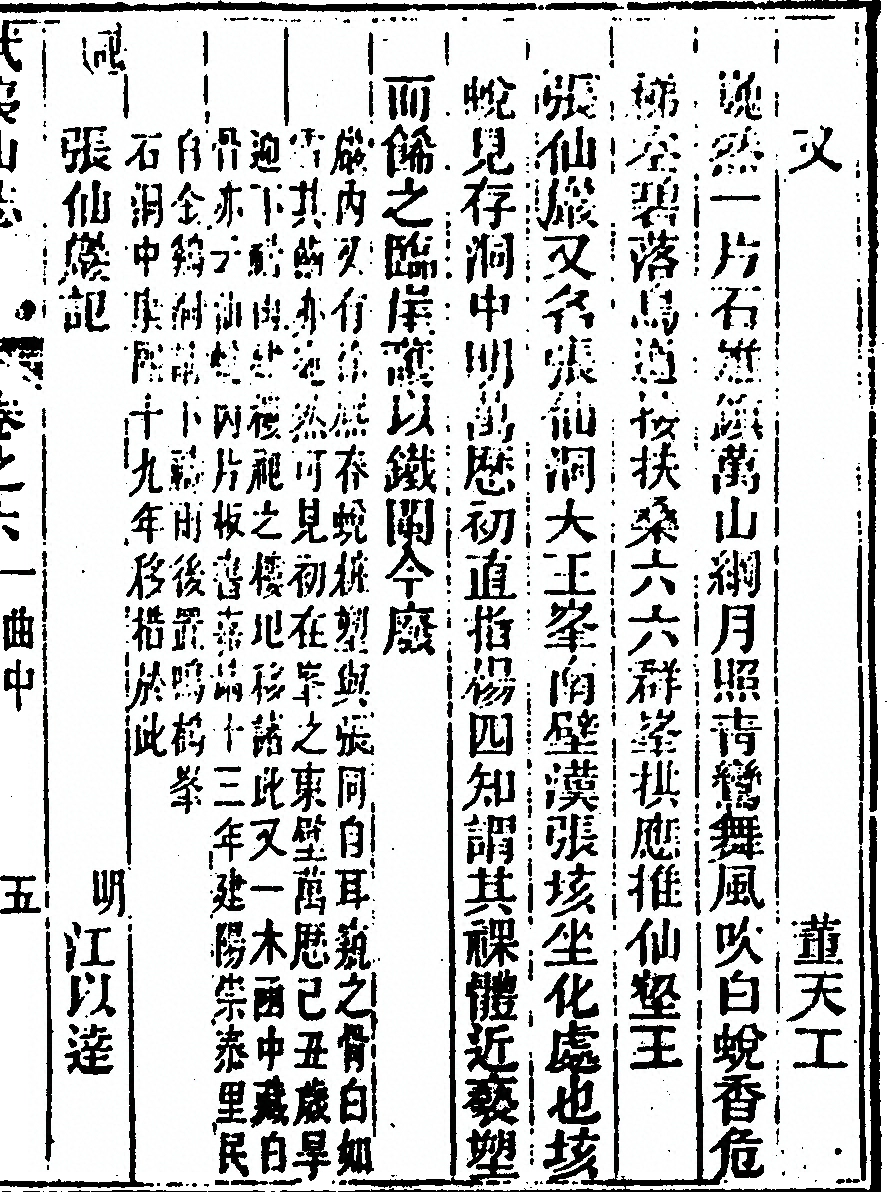 又　董天工
巍然一片石雄鎮萬山綱月照青鸞舞風吹白蛻香危
梯空碧落鳥道接扶桑六六群峯拱應推仙壑王
張仙巖又名張仙洞大王峯南壁漢張垓坐化處也垓
蛻見存洞中明萬歷初直指楊四知謂其裸體近褻塑
而餙之臨崖護以鐵闌今廢
巖內又有徐熈春蛻粧塑與張同自耳竅之骨白如
雪其齒亦宛然可見初在峯之東壁萬歷己丑歲旱
迎下禱雨建複祀之樓圯移諸此又一木函中藏白
骨亦云仙蛻內片板書嘉靖十三年建陽崇泰里民
自金雞洞請下禱雨後置鳴鶴峯
石洞中康熙十九年移措於此
記
張仙巖記　明　江以達
武夷山志　卷之六　一曲中　五